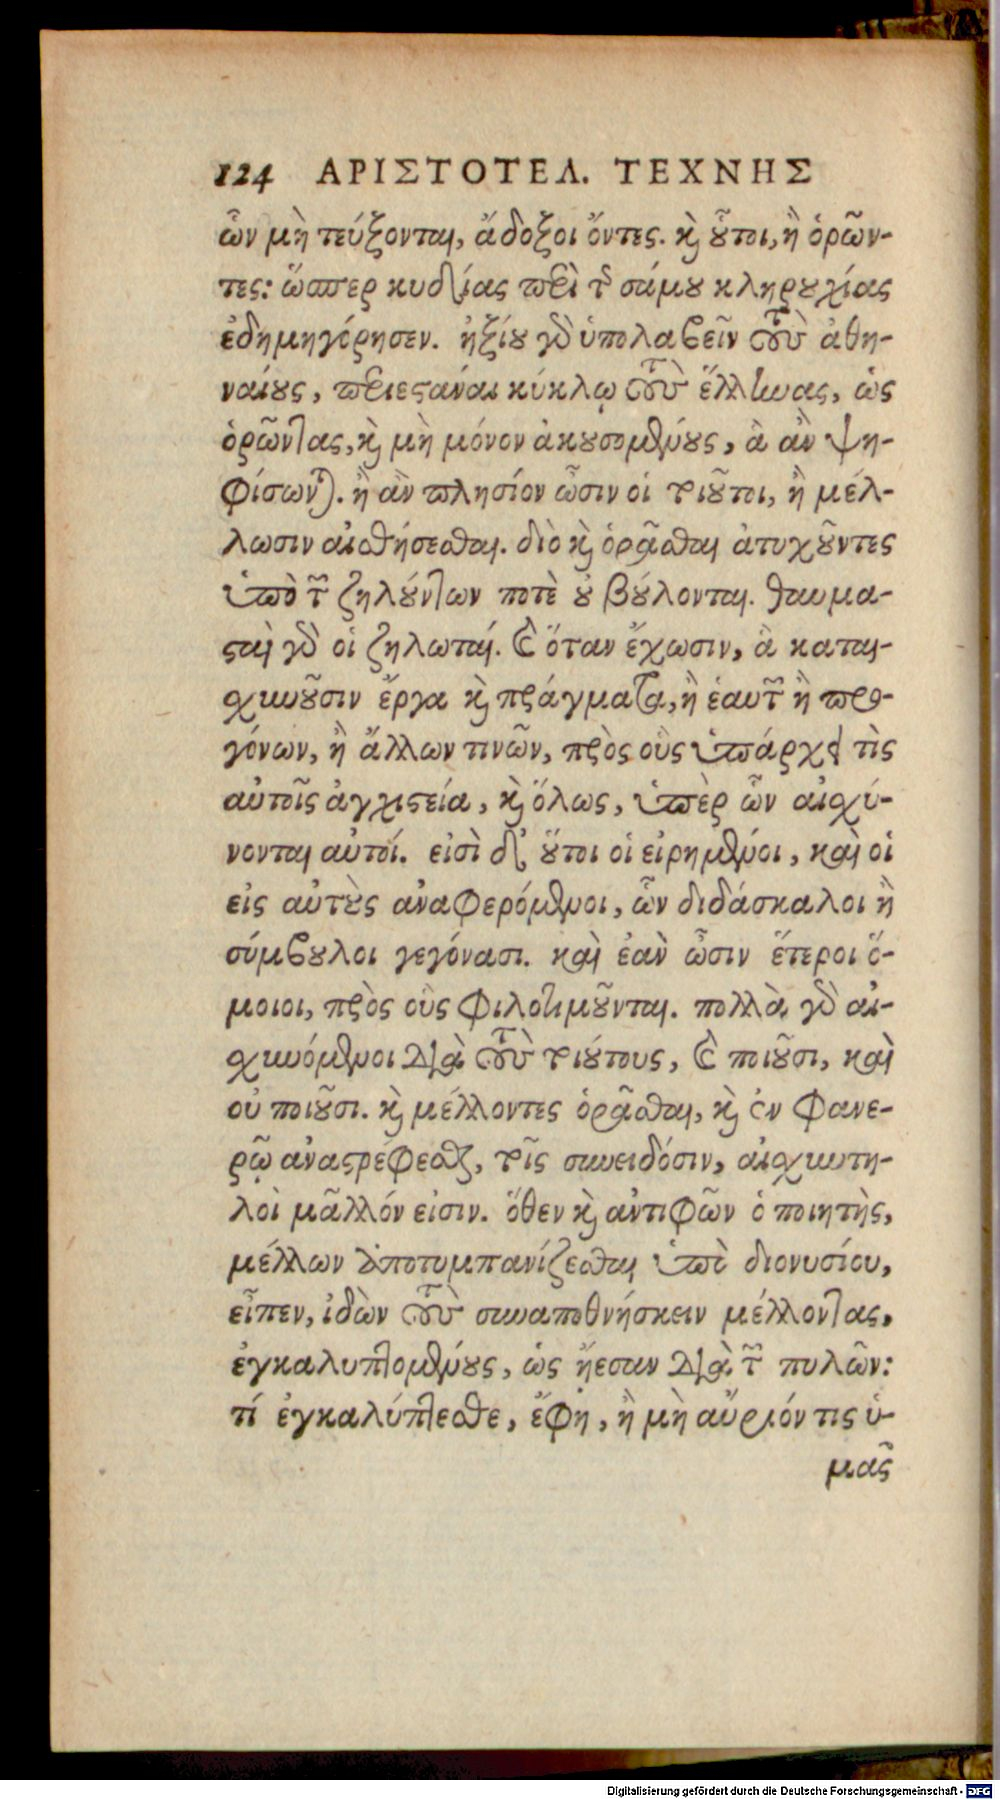 124 ΑΡΙΣΤΟΤΕΛ. ΤΕΧΝΗΣ
ὧν μὴ τεύξονται, ἄδοξοι ὄντες. καὶ οὗτοι, ἢ ὁρῶν-
τες: ὥσπερ κυδίας περὶ τῆς σάμου κληρουχίας
ἐδημηγόρησεν. ἠξίου γὰρ ὑπολαβεῖν τοὺς ἀθη-
ναίους, περιεστάναι κύκλῳ τοὺς ἕλληνας, ὡς
ὁρῶντας, καὶ μὴ μόνον ἀκουσομένους, ἃ ἂν ψη-
φίσωνται. ἢ ἂν πλησίον ὦσιν οἱ τοιοῦτοι, ἢ μέλ-
λωσιν αἰσθήσεσθαι. διὸ καὶ ὁρᾶσθαι ἀτυχοῦντες
ὑπὸ τῶν ζηλούντων ποτὲ οὐ βούλονται. θαυμα-
σταὶ γὰρ οἱ ζηλωταί. καὶ ὅταν ἔχωσιν, ἃ καται-
σχυνοῦσιν ἔργα καὶ πράγματα, ἢ ἑαυτῶν ἢ προ-
γόνων, ἢ ἄλλων τινῶν, πρὸς οὓς ὑπάρχει τὶς
αὐτοῖς ἀγχιστεία, καὶ ὅλως, ὑπὲρ ὧν αἰσχύ-
νονται αὐτοί. εἰσὶ δ' οὗτοι οἱ εἰρημένοι, καὶ οἱ
εἰς αὐτοὺς ἀναφερόμενοι, ὧν διδάσκαλοι ἢ
σύμβουλοι γεγόνασι. καὶ ἐὰν ὦσιν ἕτεροι ὅ-
μοιοι, πρὸς οὓς φιλοτιμοῦνται. πολλὰ γὰρ αἰ-
σχυνόμενοι διὰ τοὺς τοιούτους, καὶ ποιοῦσι, καὶ
οὐ ποιοῦσι. καὶ μέλλοντες ὁρᾶσθαι, καὶ ἐν φανε-
ρῷ ἀναστρέφεσθαι, τοῖς συνειδόσιν, αἰσχυντη-
λοὶ μᾶλλόν εἰσιν. ὅθεν καὶ ἀντιφῶν ὁ ποιητὴς,
μέλλων ἀποτυμπανίζεσθαι ὑπὸ διονυσίου,
εἶπεν, ἰδὼν τοὺς συναποθνήσκειν μέλλοντας,
ἐγκαλυπτομένους, ὡς ᾔεσαν διὰ τῶν πυλῶν:
τί ἐγκαλύπτεσθε, ἔφη, ἢ μὴ αὔριόν τις ὑ-
μᾶς
Digitalisierung gefördert durch die Deutsche Forschungsgemeinschaft - DFG